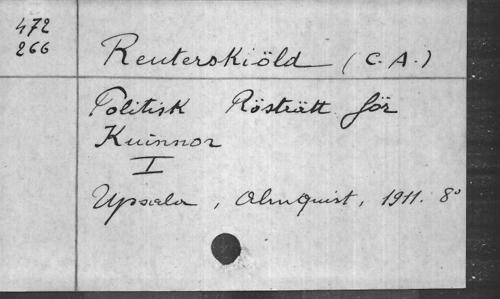 472
266
Reuterskiöld (C. A.)
Politisk Rösträtt för
Kuinnor
I
Upsala, Almquist, 1911. 8°